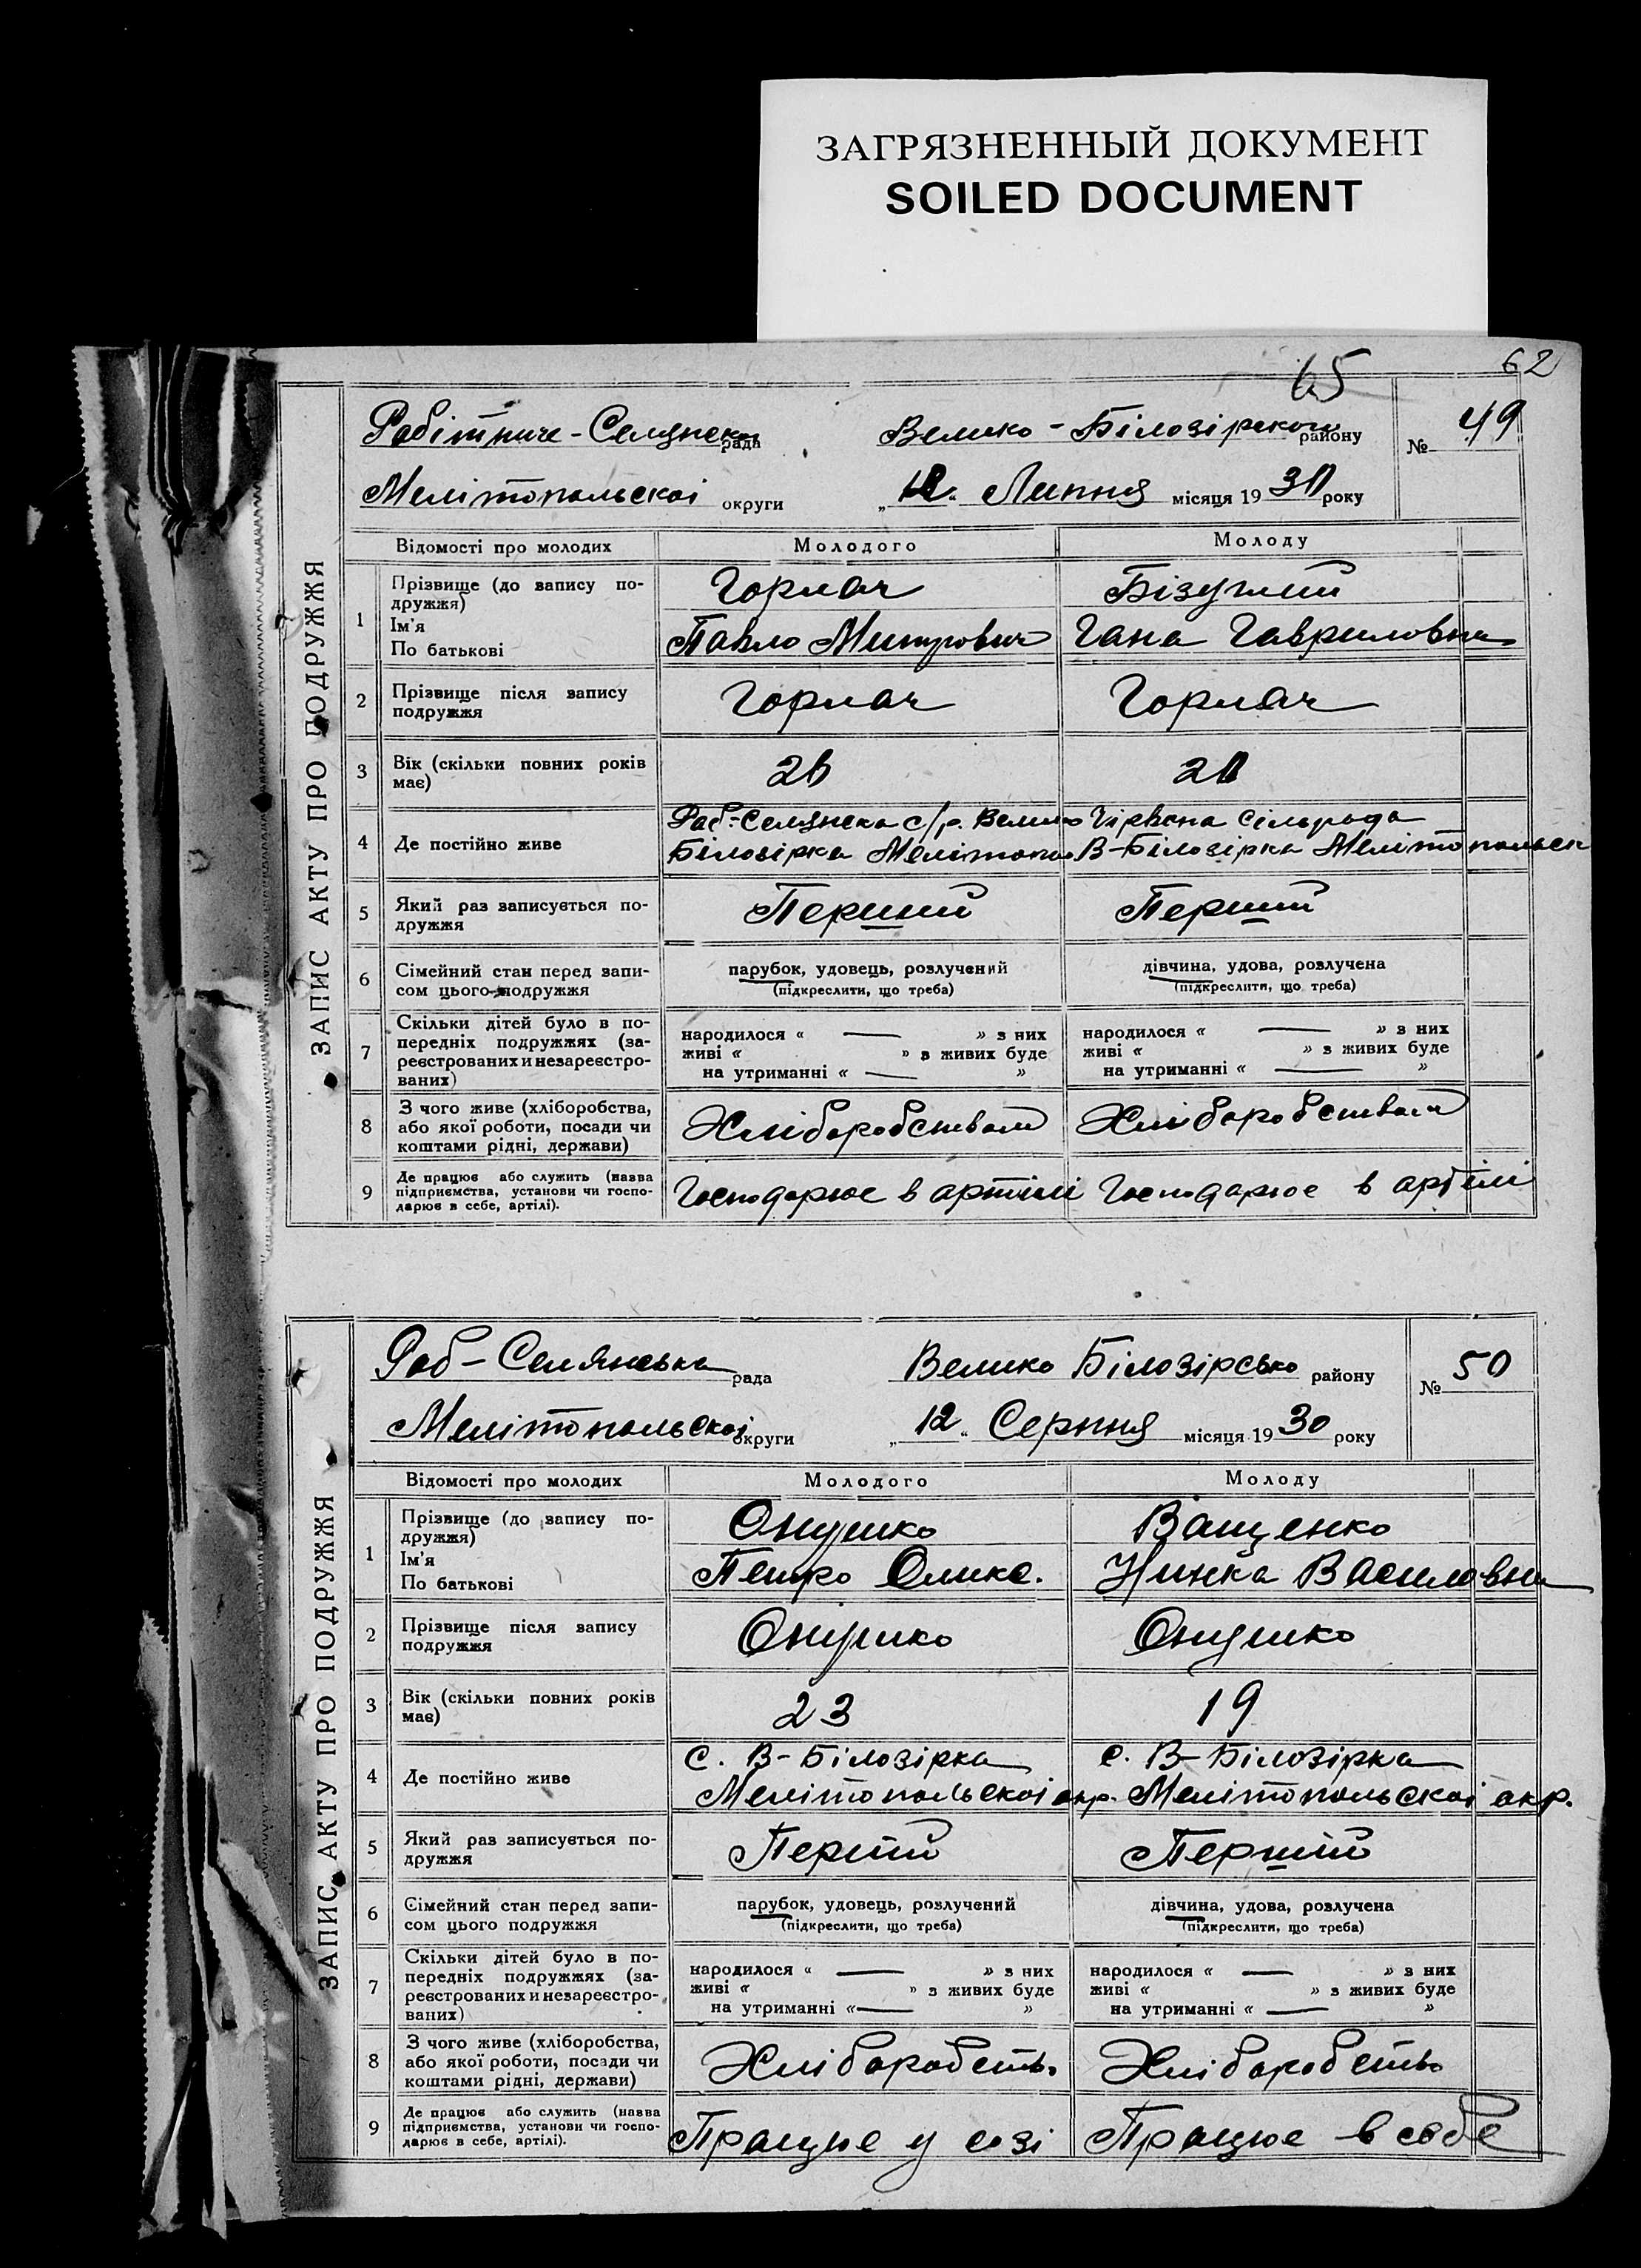 ЗАГРЯЗНЕННЫЙ ДОКУМЕНТ
SOILED DOCUMENT
65 62
Робітниче-Селянська рада Велико-Білозірського району № 49
Мелітопольскої округи „12“ Липня місяця 1930 року
ЗАПИС АКТУ ПРО ПОДРУЖЖЯ
Відомості про молодих Молодого Молоду
1 Прізвище (до запису по-
дружжя) Горлач
Ім'я
По батькові Павло Гана Гавриловна
2 Прізвище після запису
подружжя Горлач Горлач
3 Вік (скільки повних років
має) 26
4 Де постійно живе Раб-Селянска с/р. Велико Чірвона Сільрада
Білозірка Мелітопол В-Білозірка Мелітопольск
5 Який раз записується по-
дружжя Перший Перший
6 Сімейний стан перед запи-
сом цього подружжя парубок, удовець, розлучений дівчина, удова, розлучена
(підкреслити, що треба) (підкреслити, що треба)
7 Скільки дітей було в по-
передніх подружжях (за-
реєстрованих и незареєстро-
ваних) народилося « — » з них народилося « — » з них
живі « » з живих буде живі « » з живих буде
на утриманні « — » на утриманні « — »
8 З чого живе (хліборобства,
або якої роботи, посади чи
коштами рідні, держави) Хліборобством Хліборобством
9 Де працює або служить (назва
підприємства, установи чи госпо-
дарює в себе, артілі). Господарює в артілі Господарює в артілі
Раб-Селянська рада Велико Білозірсько району № 50
Мелітопольскої округи „12“ Серпня місяця 1930 року
ЗАПИС АКТУ ПРО ПОДРУЖЖЯ
Відомості про молодих Молодого Молоду
1 Прізвище (до запису по-
дружжя) Онушко Ващенко
Ім'я
По батькові Петро Оликс. Василовна
2 Прізвище після запису
подружжя Онушко Онушко
3 Вік (скільки повних років
має) 23 19
4 Де постійно живе с. В-Білозірка с. В-Білозірка
Мелітопольскої окр. Мелітопольскої окр.
5 Який раз записується по-
дружжя Перший Перший
6 Сімейний стан перед запи-
сом цього подружжя парубок, удовець, розлучений дівчина, удова, розлучена
(підкреслити, що треба) (підкреслити, що треба)
7 Скільки дітей було в по-
передніх подружжях (за-
реєстрованих и незареєстро-
ваних) народилося « — » з них народилося « — » з них
живі « » з живих буде живі « » з живих буде
на утриманні « — » на утриманні « — »
8 З чого живе (хліборобства,
або якої роботи, посади чи
коштами рідні, держави) Хліборобств. Хліборобство
9 Де працює або служить (назва
підприємства, установи чи госпо-
дарює в себе, артілі). Працює у Працює в себе